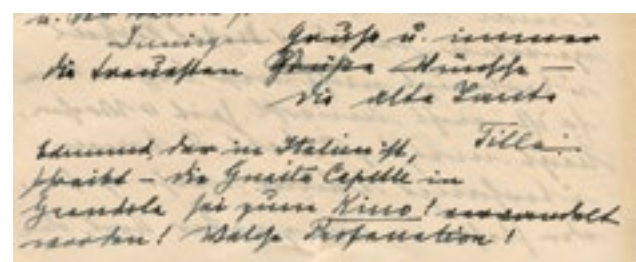 Innigen Gruß u. immer
die treuesten Grüße Wünsche —
die alte Tante
Tilla
Edmund, der in Italien ist,
schreibt – die Guaita Capelle in
Grandola sei zum Kino! verwandelt
worden! Welche Profanation!